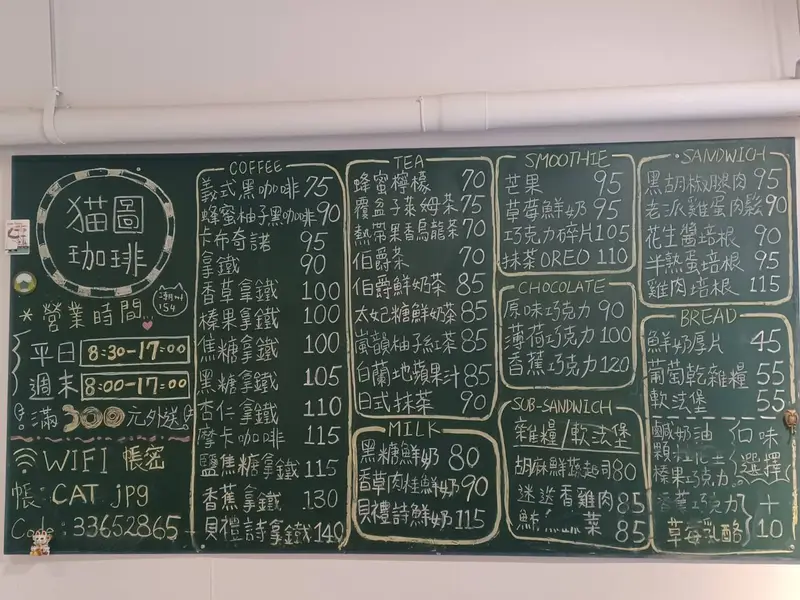 猫圖
珈琲
＊營業時間..
平日 8:30-17:00
週末 8:00-17:00
滿300元外送
WIFI 帳密
帳:CAT jpg
Code:33652865
COFFEE
義式黑咖啡 75
蜂蜜柚子黑咖啡 90
卡布奇諾 95
拿鐵 90
香草拿鐵 100
榛果拿鐵 100
焦糖拿鐵 100
黑糖拿鐵 105
杏仁拿鐵 110
摩卡咖啡 115
鹽焦糖拿鐵 115
香蕉拿鐵 130
貝禮詩拿鐵 140
TEA
蜂蜜檸檬 70
覆盆子萊姆茶 75
熱帶果香烏龍茶 70
伯爵茶 70
伯爵鮮奶茶 85
太妃糖鮮奶茶 85
嵐韻柚子紅茶 85
白蘭地蘋果汁 85
日式抹茶 90
MILK
黑糖鮮奶 80
香草肉桂鮮奶 90
貝禮詩鮮奶 115
SMOOTHIE
芒果 95
草莓鮮奶 95
巧克力碎片 105
抹茶OREO 110
CHOCOLATE
原味巧克力 90
薄荷巧克力 100
香蕉巧克力 120
SUB-SANDWICH
雜糧/軟法堡
胡麻鮮蔬起司 80
迷迭香雞肉 85
鮪 菜 85
SANDWICH
黑胡椒腿肉 95
老派雞蛋肉鬆 90
花生醬培根 90
半熟蛋培根 95
雞肉培根 115
BREAD
鮮奶厚片 45
葡萄乾雜糧 55
軟法堡 55
鹹奶油 口味
顆粒花生 選擇
榛果巧克力
香蕉巧克力 +
草莓乳酪 10